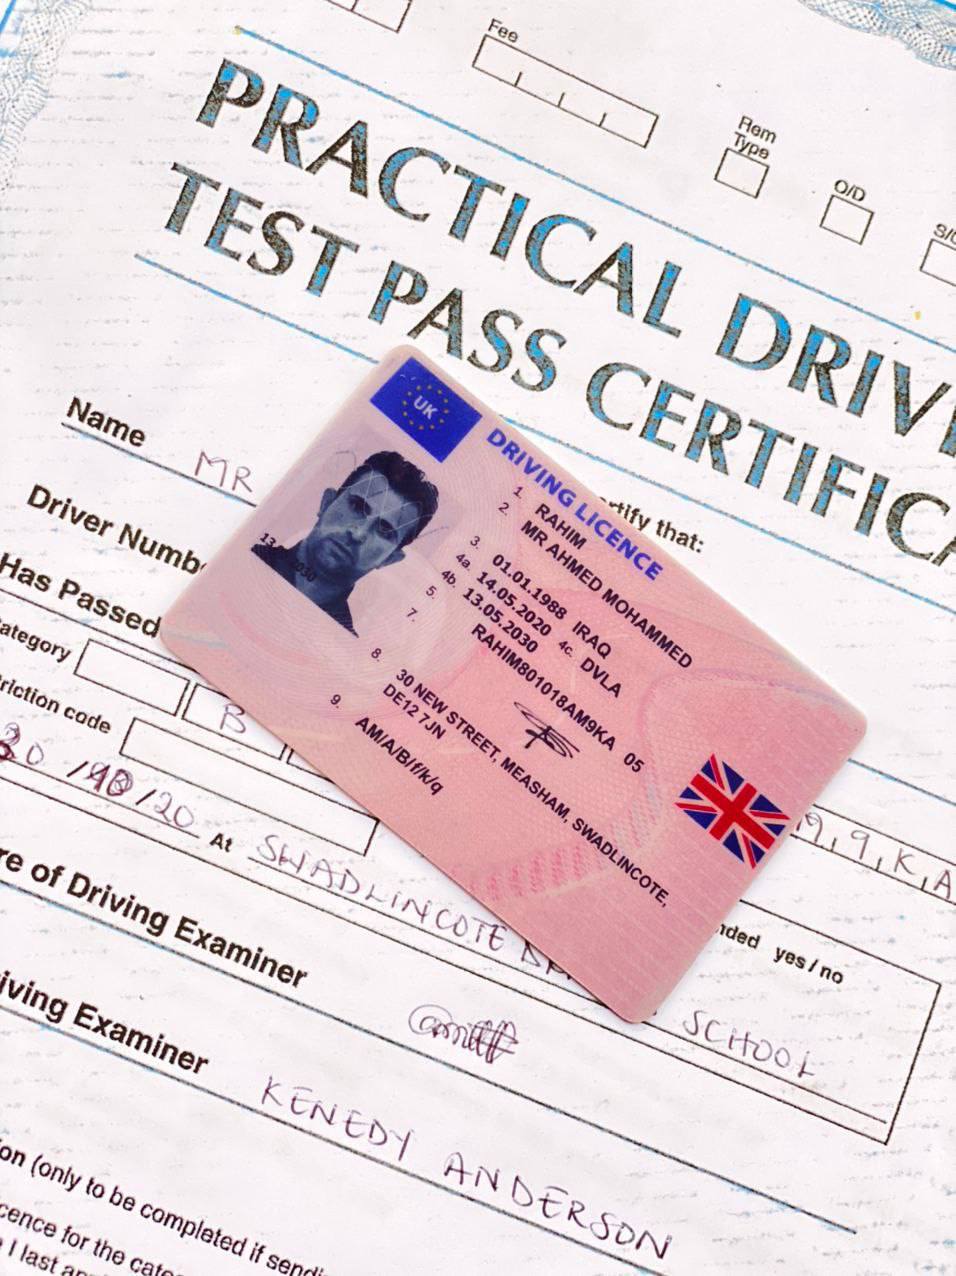 Fee
Rem
Type
O/D
S/C
PRACTICAL DRIV
TEST PASS CERTIFICA
Name MR
rtify that:
Driver Numbe
Has Passed
ategory
B
riction code
/20 At SWADLINCOTE
SCHOOL
9, 9, K, A
nded yes / no
re of Driving Examiner
iving Examiner KENEDY ANDERSON
on (only to be completed if sendi
cence for the categ
I last
UK
DRIVING LICENCE
1. RAHIM
2. MR AHMED MOHAMMED
3. 01.01.1988 IRAQ
4a. 14.05.2020 4c. DVLA
4b. 13.05.2030
5. RAHIM801018AM9KA 05
7.
8. 30 NEW STREET, MEASHAM, SWADLINCOTE,
DE12 7JN
9. AM/A/B/f/k/q